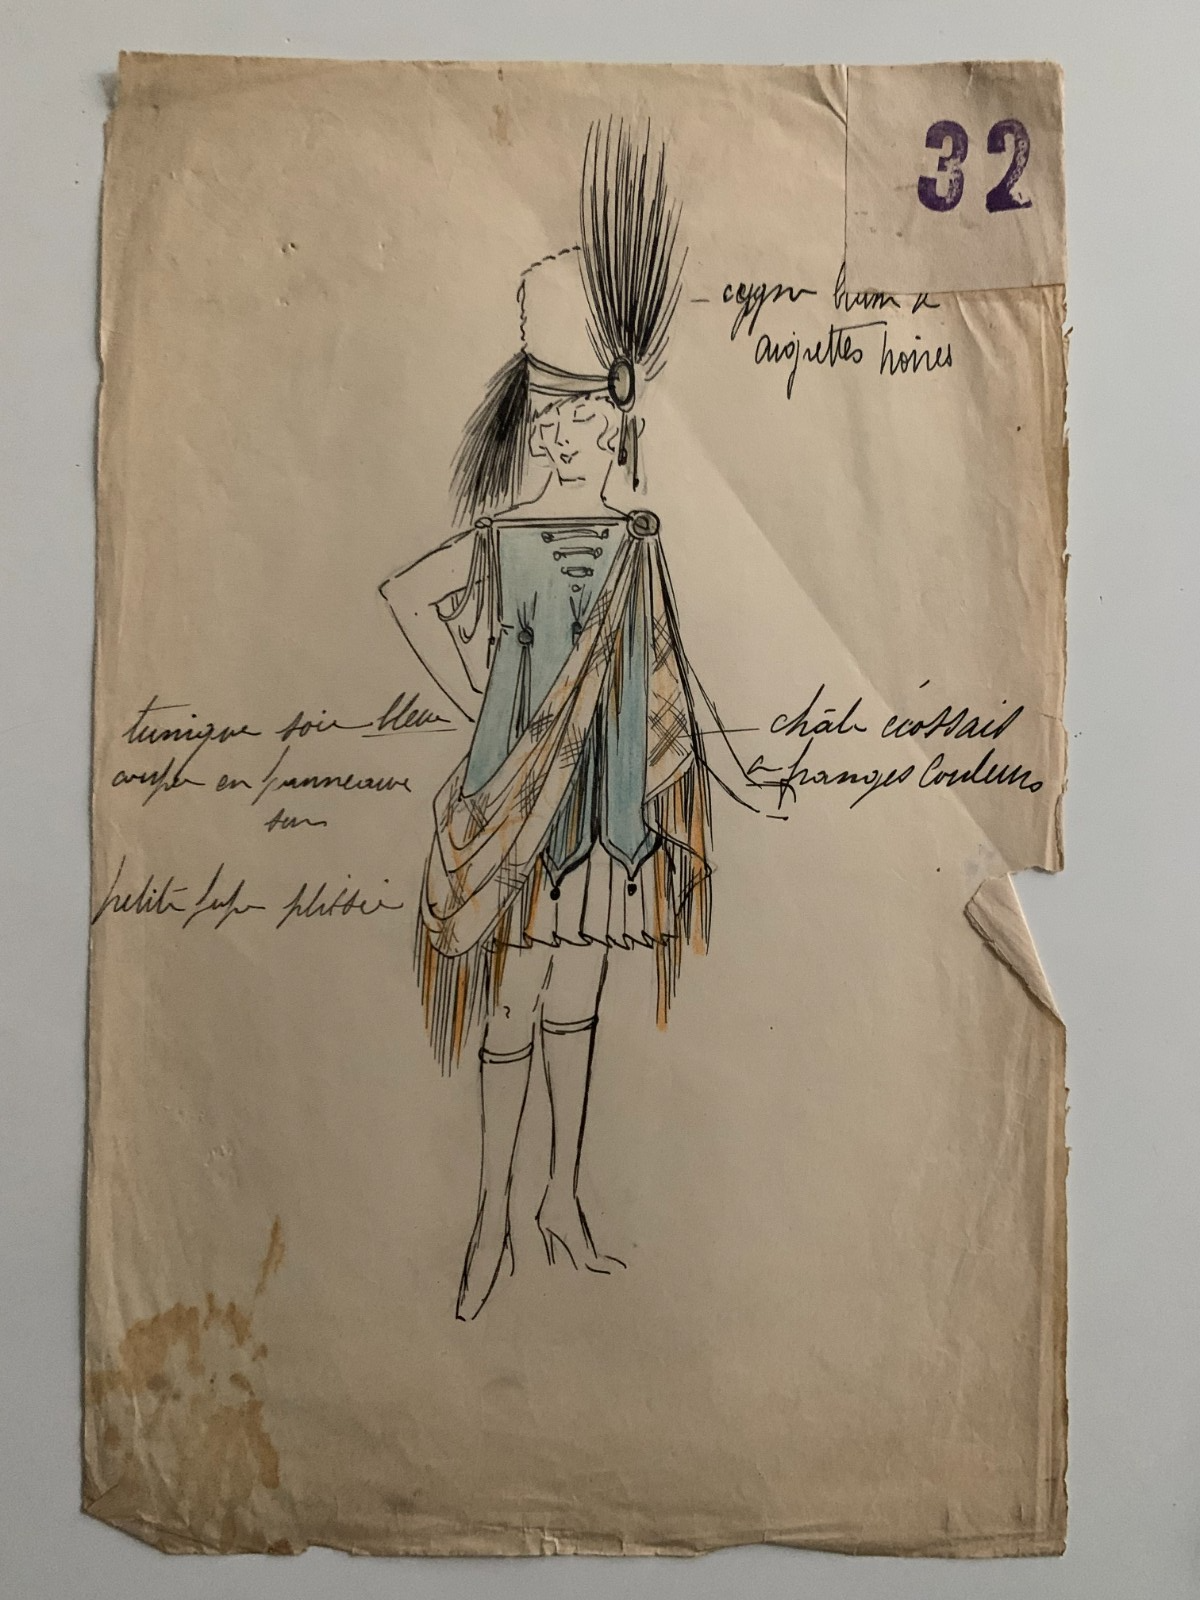 32
cygne brun à
aigrettes noires
tunique soie bleue
coupé en panneaux
sur
petite jupe plissée
châle écossais
à franges couleurs